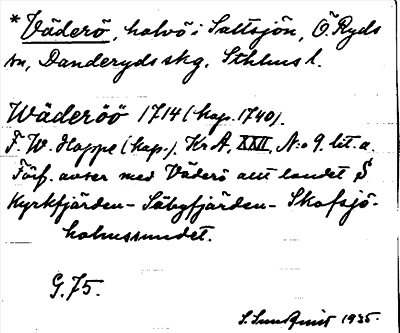 *Väderö, halvö i Saltsjön, Ö. Ryds
sn, Danderyds skg. Sthlms l.
Wäderöö 1714 (kop. 1740).
F. W. Hoppe (kop.). Kr A, XXII, N:o 9. lit. a.
Förf. avser med Väderö allt landet S
Kyrkfjärden - Säbyfjärden - Skafsjö-
holmssundet.
G. 75.
S. Sundquist 1935.